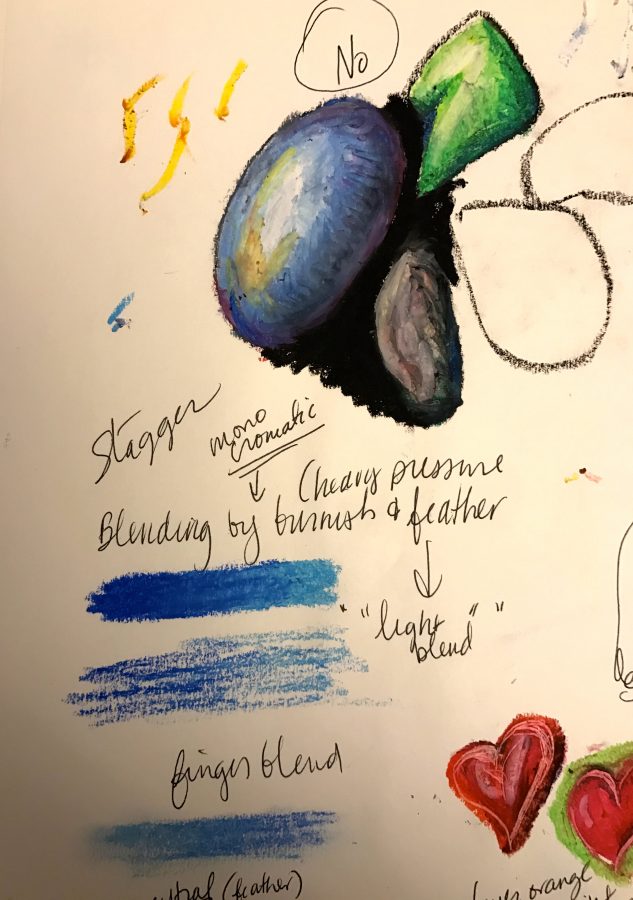 No
Stagger
mono
cromatic
(heavy pressure
Blending by burnish & feather
" "light" "
blend"
finger blend
(feather)
orange